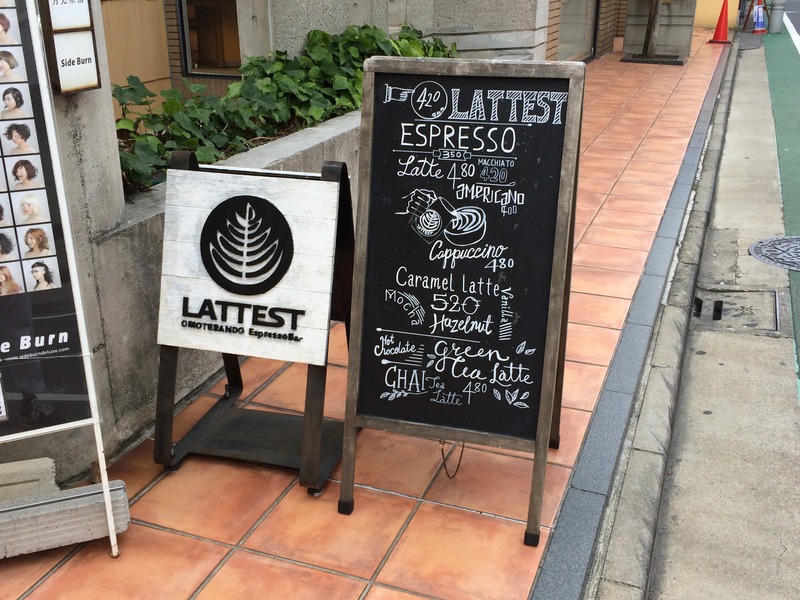 Side Burn
de Burn
www.sideburndeluxe.com
LATTEST
OMOTESANDO EspressoBar
420 LATTEST
ESPRESSO
350
Latte 480
MACCHIATO
420
AMERICANO
400
Cappuccino
480
Caramel latte
Mocha 520 Vanilla
Hazelnut
Hot
Chocolate
Green
tea Latte
CHAI Tea
Latte 480